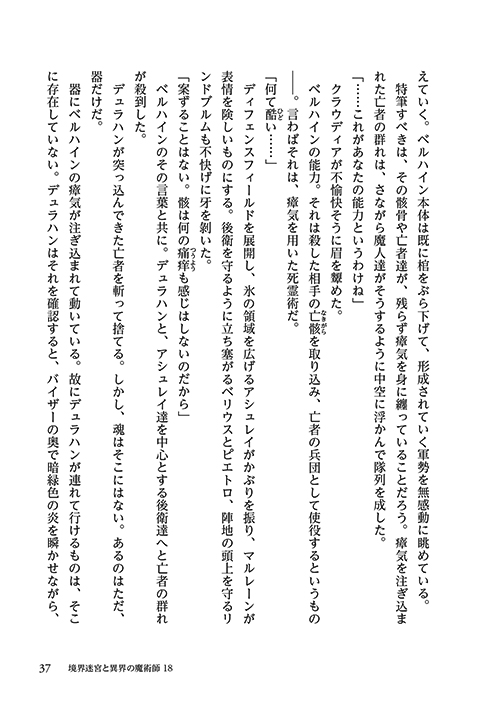 えていく。ベルハイン本体は既に棺をぶら下げて、形成されていく軍勢を無感動に眺めている。
特筆すべきは、その骸骨や亡者達が、残らず瘴気を身に纏っていることだろう。瘴気を注ぎ込ま
れた亡者の群れは、さながら魔人達がそうするように中空に浮かんで隊列を成した。
「……これがあなたの能力というわけね」
クラウディアが不愉快そうに眉を顰めた。
ベルハインの能力。それは殺した相手の亡骸を取り込み、亡者の兵団として使役するというもの
――。言わばそれは、瘴気を用いた死霊術だ。
「何て酷い……」
ディフェンスフィールドを展開し、氷の領域を広げるアシュレイがかぶりを振り、マルレーンが
表情を険しいものにする。後衛を守るように立ち塞がるベリウスとピエトロ、陣地の頭上を守るリ
ンドブルムも不快げに牙を剝いた。
「案ずることはない。骸は何の痛痒も感じはしないのだから」
ベルハインのその言葉と共に。デュラハンと、アシュレイ達を中心とする後衛達へと亡者の群れ
が殺到した。
デュラハンが突っ込んできた亡者を斬って捨てる。しかし、魂はそこにはない。あるのはただ、
器だけだ。
器にベルハインの瘴気が注ぎ込まれて動いている。故にデュラハンが連れて行けるものは、そこ
に存在していない。デュラハンはそれを確認すると、バイザーの奥で暗緑色の炎を瞬かせながら、
37 境界迷宮と異界の魔術師 18